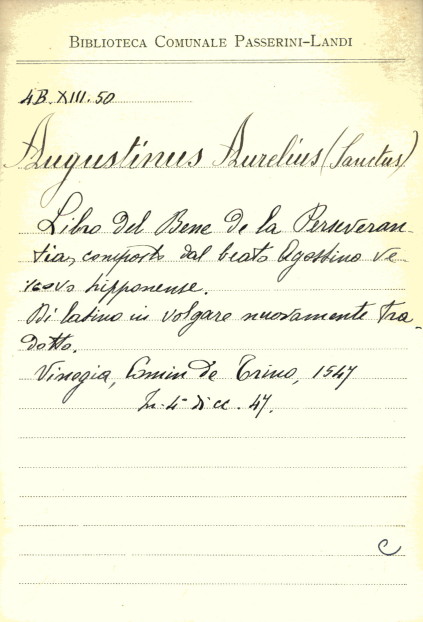 BIBLIOTECA COMUNALE PASSERINI-LANDI
4B.XIII.50
Augustinus Aurelius (Sanctus)
Libro del Bene de la Perseveran-
tia, composto dal beato Agostino ve-
scovo hipponense.
Di latino in volgare nuovamente tra-
dotto.
Vinegia, Comin de Trino, 1547
In-4° di cc. 47.
C